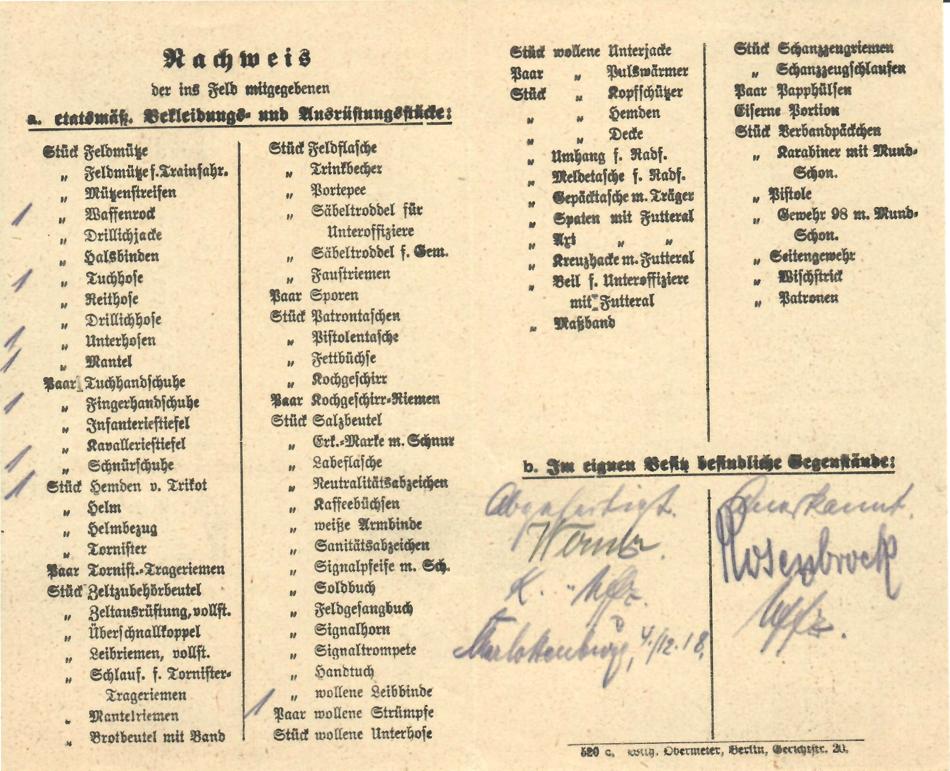 Nachweis
der ins Feld mitgegebenen
a. etatsmäß. Bekleidungs- und Ausrüstungsstücke:
Stück Feldmütze
„ Feldmütze f. Trainfahr.
„ Mützenstreifen
1 „ Waffenrock
„ Drillichjacke
„ Halsbinden
1 „ Tuchhose
„ Reithose
„ Drillichhose
1 „ Unterhosen
1 „ Mantel
Paar Tuchhandschuhe
1 „ Fingerhandschuhe
„ Infanteriestiefel
„ Kavalleriestiefel
1 „ Schnürschuhe
1 Stück Hemden v. Trikot
„ Helm
„ Helmbezug
„ Tornister
Paar Tornist.-Trageriemen
Stück Zeltzubehörbeutel
„ Zeltausrüstung, vollst.
„ Überschnallkoppel
„ Leibriemen, vollst.
„ Schlauf. f. Tornister-
Trageriemen
„ Mantelriemen
„ Brotbeutel mit Band
Stück Feldflasche
„ Trinkbecher
„ Portepee
„ Säbeltroddel für
Unteroffiziere
„ Säbeltroddel f. Gem.
„ Faustriemen
Paar Sporen
Stück Patrontaschen
„ Pistolentasche
„ Fettbüchse
„ Kochgeschirr
Paar Kochgeschirr-Riemen
Stück Salzbeutel
„ Erk.-Marke m. Schnur
„ Labeflasche
„ Neutralitätsabzeichen
„ Kaffeebüchsen
„ weiße Armbinde
„ Sanitätsabzeichen
„ Signalpfeife m. Sch.
„ Soldbuch
„ Feldgesangbuch
„ Signalhorn
„ Signaltrompete
„ Handtuch
„ wollene Leibbinde
1 Paar wollene Strümpfe
Stück wollene Unterhose
Stück wollene Unterjacke
Paar „ Pulswärmer
Stück „ Kopfschützer
„ „ Hemden
„ „ Decke
„ Umhang f. Radf.
„ Meldetasche f. Radf.
„ Gepäcktasche m. Träger
„ Spaten mit Futteral
„ Axt „ „
„ Kreuzhacke m. Futteral
„ Beil f. Unteroffiziere
mit Futteral
„ Maßband
Stück Schanzzeugriemen
„ Schanzzeugschlaufen
Paar Papphülsen
Eiserne Portion
Stück Verbandpäckchen
„ Karabiner mit Mund-
Schon.
„ Pistole
„ Gewehr 98 m. Mund-
Schon.
„ Seitengewehr
„ Wischstrick
„ Patronen
b. Im eignen Besitz befindliche Gegenstände:
Abgefertigt.
Werner
Uffz.
Charlottenburg, 4./12.18.
Anerkannt.
Rosenbrock
Uffz.
520 c. Wilh. Obermeier, Berlin, Gerichtstr. 20.